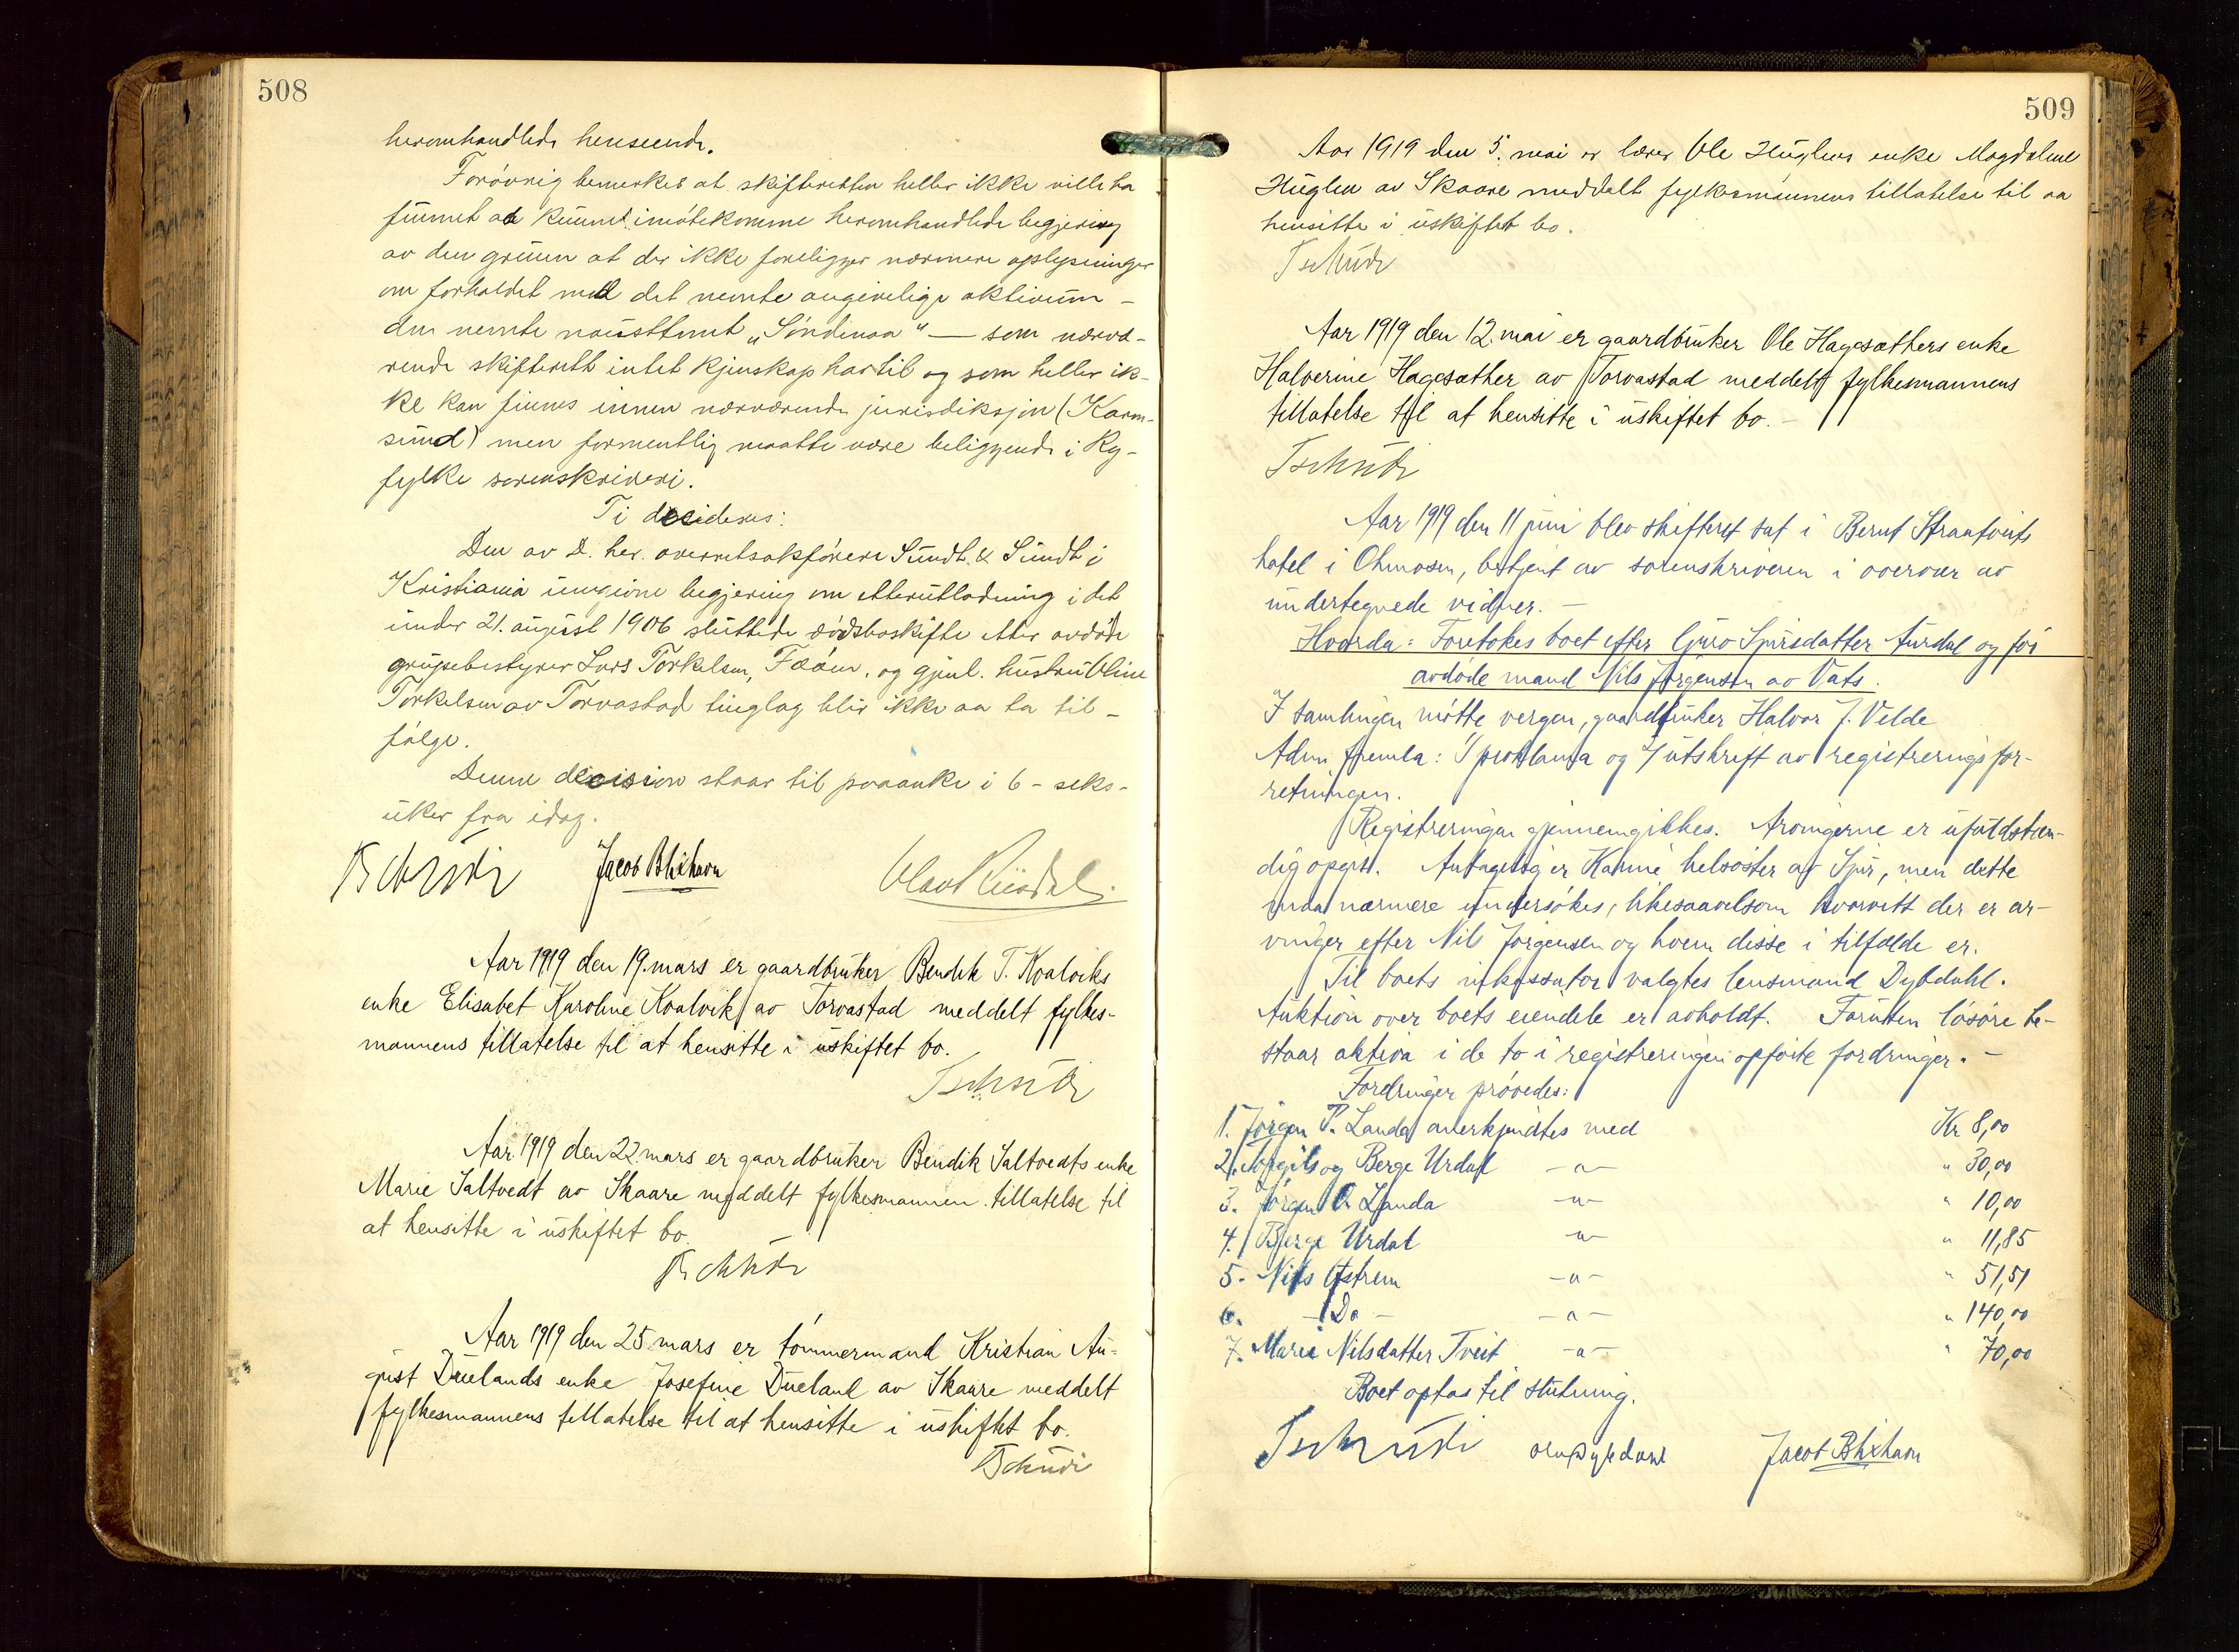 508
heromhandlede henseende.
Forøvrig bemerkes at skifteretten heller ikke ville ha
funnet at kunne imøtekomme heromhandlede begjering
av den grunn at der ikke foreligger nærmere oplysninger
om forholdet med det nevnte angivelige aktivum –
den nevnte nausttomt „Søndenaa" — som nærvæ-
rende skifterett intet kjenskap har til og som heller ik-
ke kan finnes innen nærværende jurisdiksjon (Karm-
sund) men formentlig maatte være beliggende i Ry-
fylke sorenskriveri.
Ti decideres:
Den av D. her. overretssakførere Sundt & Sundt i
Kristiania inngivne begjering om etterutlodning i det
under 21. august 1906 sluttede dødsboskifte etter avdøde
grubebestyrer Lars Torkelsen, Fæøen, og gjenl. hustru Oline
Torkelsen av Torvastad tinglag blir ikke aa ta til –
følge.
Denne decision staar til paaanke i 6 – seks –
uker fra idag.
Tschudi Jacob Blikhavn Olav Riisdal.
Aar 1919 den 19. mars er gaardbruker Bendik T. Kvalviks
enke Elisabet Karoline Kvalvik av Torvastad meddelt fylkes-
mannens tillatelse til at hensitte i uskiftet bo.
Tschudi
Aar 1919 den 22. mars er gaardbruker Bendik Saltvedts enke
Marie Saltvedt av Skaare meddelt fylkesmannen tillatelse til
at hensitte i uskiftet bo.
Tschudi
Aar 1919 den 25. mars er tømmermand Kristian Au-
gust Duelands enke Josefine Dueland av Skaare meddelt
fylkesmannens tillatelse til at hensitte i uskiftet bo.
Tschudi
509
Aar 1919 den 5. mai er lærer Ole Huglens enke Magdalene
Huglen av Skaare meddelt fylkesmannens tillatelse til aa
hensitte i uskiftet bo.
Tschudi
Aar 1919 den 12. mai er gaardbruker Ole Hagesæthers enke
Halverine Hagesæther av Torvastad meddelt fylkesmannens
tillatelse til at hensitte i uskiftet bo. –
Tschudi
Aar 1919 den 11 juni blev skifteret sat i Bernt Straatveits
hotel i Ølmosen, betjent av sorenskriveren i overvær av
undertegnede vidner. –
Hvorda: Foretokes boet efter Guro Spursdatter Aurdal og før
avdøde mand Nils Jørgensen av Vats.
I samlingen møtte vergen, gaardbruker Halvor J. Velde
Adm. fremla: 1/ proklama og 2/ utskrift av registreringsfor-
retningen.
Registreringen gjennemgikkes. Arvingerne er ufuldstæn-
dig opgit. Antagelig er Karine helsøster av Spur, men dette
maa nærmere undersøkes, likesaavelsom hvorvitt der er ar-
vinger efter Nils Jørgensen og hvem disse i tilfælde er.
Til boets inkassator valgtes lensmand Dybdahl.
Auktion over boets eiendele er avholdt. Foruten løsøre be-
staar aktiva i de to i registreringen opførte fordringer. –
Fordringer prøvedes:
1. Jørgen P. Landa anerkjendtes med Kr 8,00
2. og Berge Urdal –"– " 30,00
3. Jørgen O. Landa –"– " 10,00
4. Berge Urdal –"– " 11,85
5. Nils Østrem –"– " 51,51
6. – Do – –"– " 140,00
7. Marie Nilsdatter Tveit –"– " 70,00
Boet optas til slutning.
Tschudi Olav Dybdahl Jacob Blikhavn